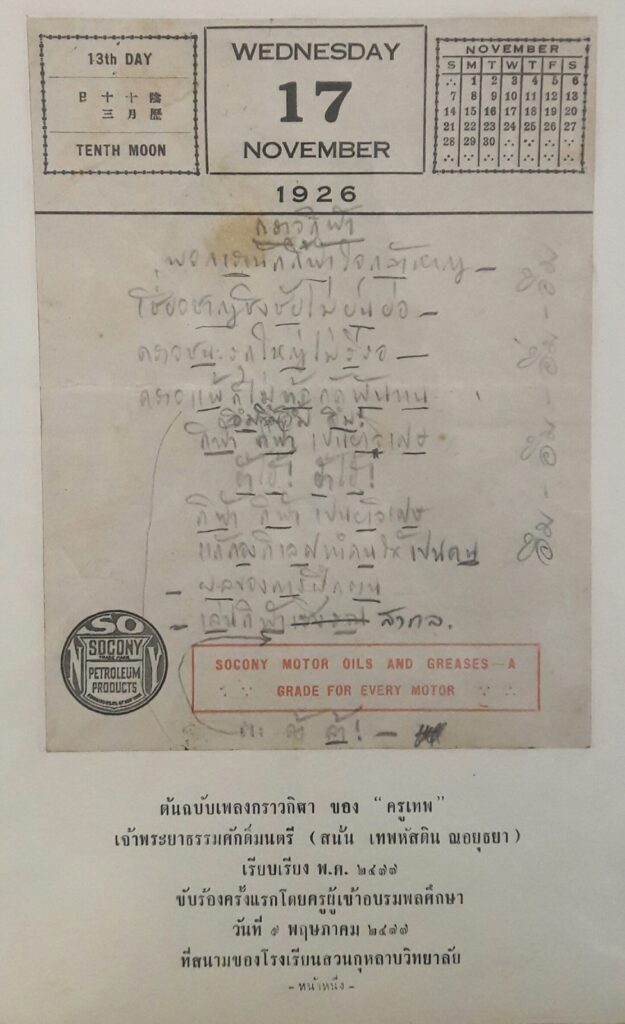 13th DAY
陰歷
十月
十三
日
TENTH MOON
WEDNESDAY
17
NOVEMBER
NOVEMBER
S M T W T F S
∴ 1 2 3 4 5 6
7 8 9 10 11 12 13
14 15 16 17 18 19 20
21 22 23 24 25 26 27
28 29 30
1926
กราวกีฬา
พวกเรานักกีฬาใจกล้าหาญ –
เชี่ยวชาญชิงชัยไม่ย่นย่อ –
คราวชนะรุกใหญ่ไม่รั้งรอ –
คราวแพ้ก็ไม่ท้อกัดฟันทน
กีฬา กีฬา เป็นยาวิเศษ
ฮ้าไฮ้! ฮ้าไฮ้!
กีฬา กีฬา เป็นยาวิเศษ
แก้กองกิเลสทำคนให้เป็นคน
– ผลของการฝึกตน
– เล่นกีฬา สากล.
ฮึ่ม - ฮึ่ม - ฮึ่ม - ฮึ่ม
SO
NY
SOCONY
TRADE MARK
PETROLEUM
PRODUCTS
SOCONY MOTOR OILS AND GREASES—A
GRADE FOR EVERY MOTOR
ล้า! –
ต้นฉบับเพลงกราวกีฬา ของ “ ครูเทพ”
เจ้าพระยาธรรมศักดิ์มนตรี ( สนั้น เทพหัสดิน ณอยุธยา )
เรียบเรียง พ.ศ. ๒๔๗๗
ขับร้องครั้งแรกโดยครูผู้เข้าอบรมพลศึกษา
วันที่ ๙ พฤษภาคม ๒๔๗๗
ที่สนามของโรงเรียนสวนกุหลาบวิทยาลัย
- หน้าหนึ่ง -